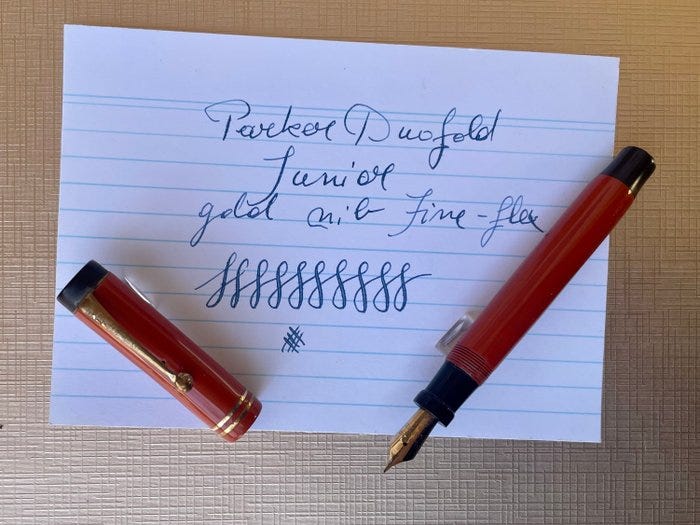 Parker Duofold
Junior
gold nib fine-flex